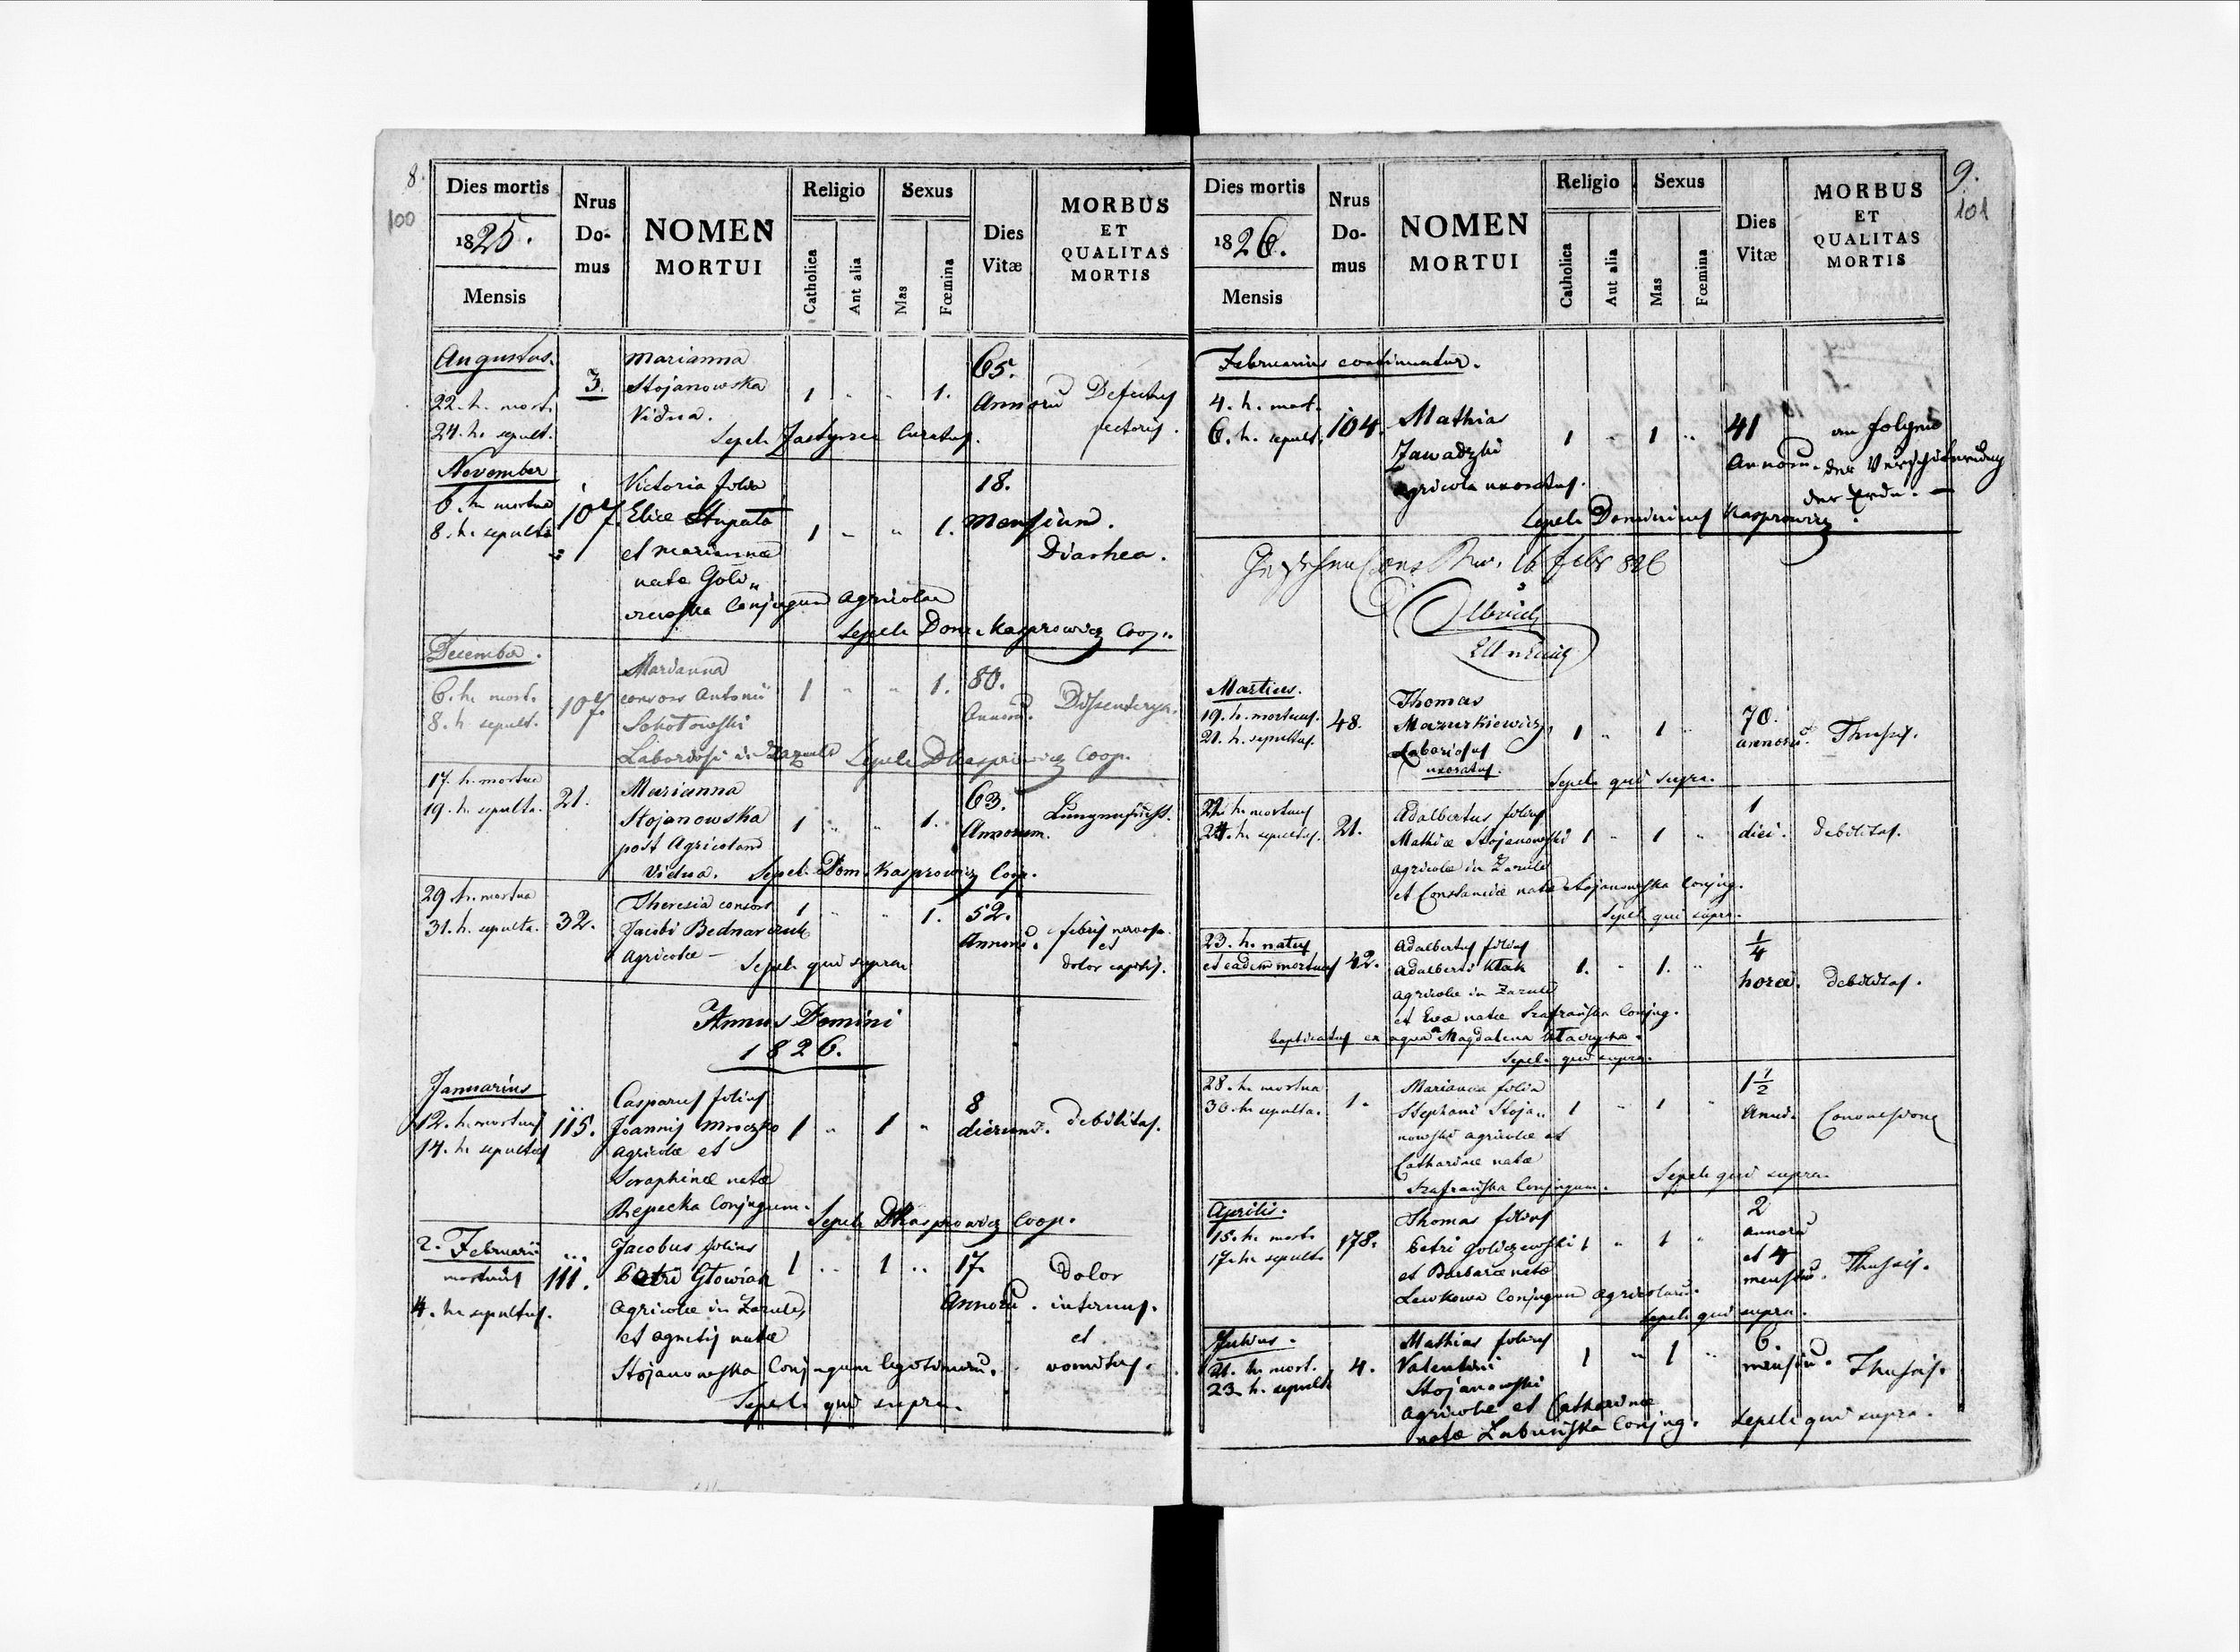 8.
100
Dies mortis
1825.
Mensis
Nrus Do-mus
NOMEN MORTUI
Religio
Catholica
Ant alia
Sexus
Mas
Fœmina
Dies Vitæ
MORBUS ET QUALITAS MORTIS
Augustus.
22. h. mort.
24. h. sepult.
3.
Marianna
Stojanowska
Vidua.
1 " " 1.
65.
Annorū
Defectus
pectoris.
Sepel.
Curatus.
November
6. h. mortua
8. h. sepulta
107.
Victoria filia
Eliæ Stupata
et Mariannæ
nata
Conjugum Agricolar
1 " " 1.
18.
Mensium.
Diarhea.
Sepel. Dom. Kasprowicz Coop.
December.
6. h. mort.
8. h. sepult.
107.
Marianna
consors Antonii
Sokołowski
Laboriosi in Zazule
1 " " 1.
80.
Annorū.
Sepel. D Kasprowicz Coop.
17. h. mortua
19. h. sepulta.
21.
Marianna
Stojanowska
post Agricolam
Vidua.
1 " " 1.
63.
Annorum.
Lungensucht.
Sepel. Dom. Kasprowicz Coop.
29. h. mortua
31. h. sepulta.
32.
Theresia consors
Jacobi Bednarczuk
Agricolæ
1 " " 1.
52.
Annorū.
febris nervosa
et
dolor capitis.
Sepel. qui supra
Annus Domini
1826.
Januarius
12. h. mortuus
14. h. sepultus
115.
Casparus filius
Joannis Mroczko
Agricolæ et
Seraphinæ natæ
Rzepecka Conjugum.
1 " 1 "
8
dierum.
debilitas.
Sepel. D Kasprowicz Coop.
2. Februarii
mortuus
4. h. sepultus.
111.
Jacobus filius
Petri Głowiak
Agricolæ in Zazule,
et Agnetis natæ
Stojanowska Conjugum legitimorū.
1 " 1 "
17.
Annorū.
Dolor
internus.
et
vomitus.
Sepel. qui supra.
9.
101
Dies mortis
1826.
Mensis
Nrus Do-mus
NOMEN MORTUI
Religio
Catholica
Aut alia
Sexus
Mas
Fœmina
Dies Vitæ
MORBUS ET QUALITAS MORTIS
Februarius continuatur.
4. h. mort.
6. h. sepult.
104.
Mathia
Zawadzki
Agricola uxoratus.
1 " 1 "
41
Annorū.
an folgen
der Verschütterung
der Erde. —
Sepel. Dominicus Kasprowicz.
16 febr 826
Martius.
19. h. mortuus.
21. h. sepultus.
48.
Thomas
Mazurkiewicz,
Laboriosus
uxoratus.
1 " 1 "
70.
annorū.
Thussis.
Sepel. qui supra.
22. h. mortuus
24. h. sepultus.
21.
Adalbertus filius
Mathiæ Stojanowski
Agricolæ in Zazule
et Constanciæ natæ Stojanowska Conjug.
1 " 1 "
1
diei.
debilitas.
Sepel. qui supra.
23. h. natus
et eadem mortuus
42.
Adalbertus filius
Adalberti Ktak
Agricolæ in Zazule
et Evæ natæ Szafrańska Conjug.
Baptisatus ex aqua a Magdalena
1. " 1. "
1/4
horæ.
debilitas.
Sepel. qui supra.
28. h. mortua
30. h. sepulta.
1.
Marianna filia
Stephani Stoja"
nowski agricolæ et
Catharinæ natæ
Szafrańska Conjugum.
1 " 1 "
1 1/2
Anni.
Sepel. qui supra.
Aprilis.
15. h. mort.
17. h. sepult.
178.
Thomas filius
Petri Goliczewski
et Barbaræ natæ
Lewkowa Conjugum Agricolarū.
1 " 1 "
2
annorū
et 4
mensiū.
Thussis.
Sepel. qui supra.
Julius.
21. h. mort.
23. h. sepult.
4.
Mathias filius
Valentini
Stojanowski
Agricolæ et Catharinæ
natæ Łabuńska Conjug.
1 " 1 "
6
mensiū.
Thussis.
Sepel. qui supra.